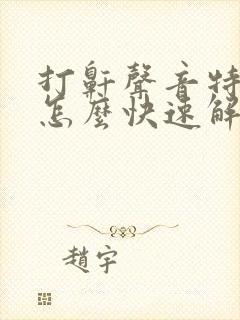 打鼾聲音特
怎麼快速解
趙宇